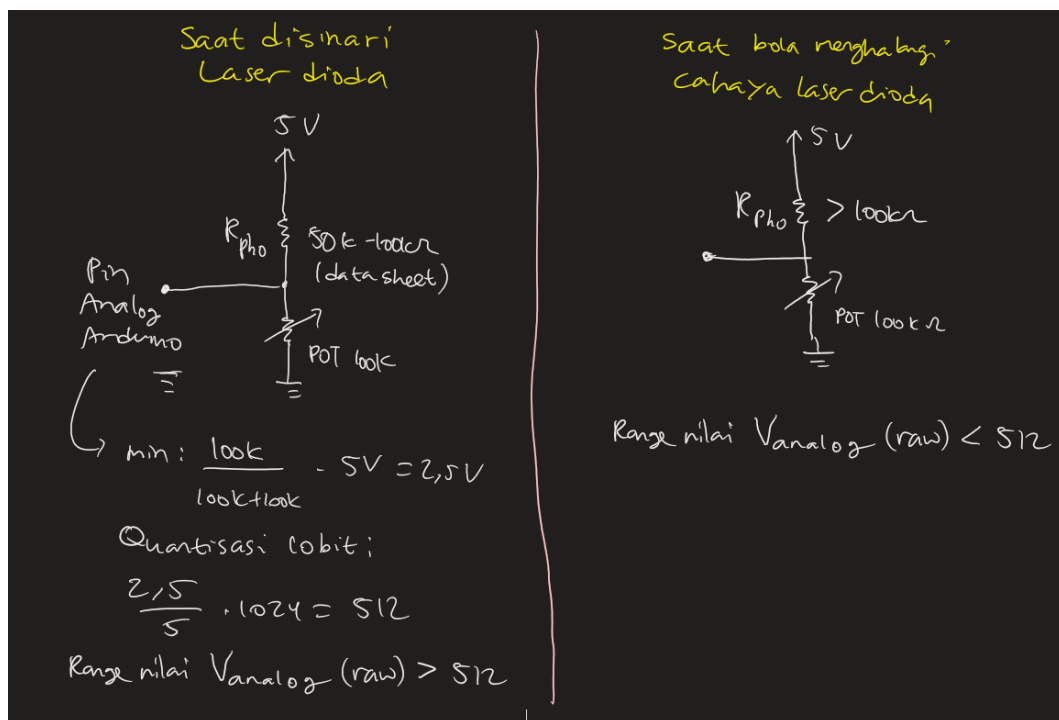 Saat disinari
Laser dioda
5 V
Rpho
50k-100kΩ
(datasheet)
Pin
Analog
Arduino
POT 100K
min : 100k / 100k+100k · 5V = 2,5V
Quantisasi 10bit :
2,5 / 5 . 1024 = 512
Range nilai Vanalog (raw) > 512
Saat bola menghalangi
Cahaya laser dioda
5V
Rpho > 100kΩ
POT 100kΩ
Range nilai Vanalog (raw) < 512